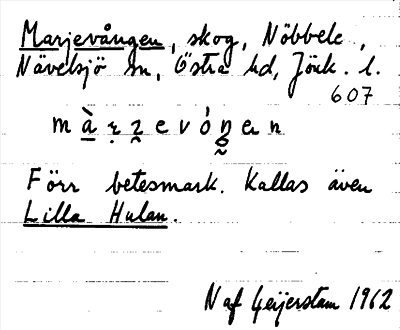 Marjevången, skog, Nöbbele,
Nävelsjö sn, Östra hd, Jönk. l.
607
Förr betesmark. Kallas även
Lilla Hulan.
N af Geijerstam 1962